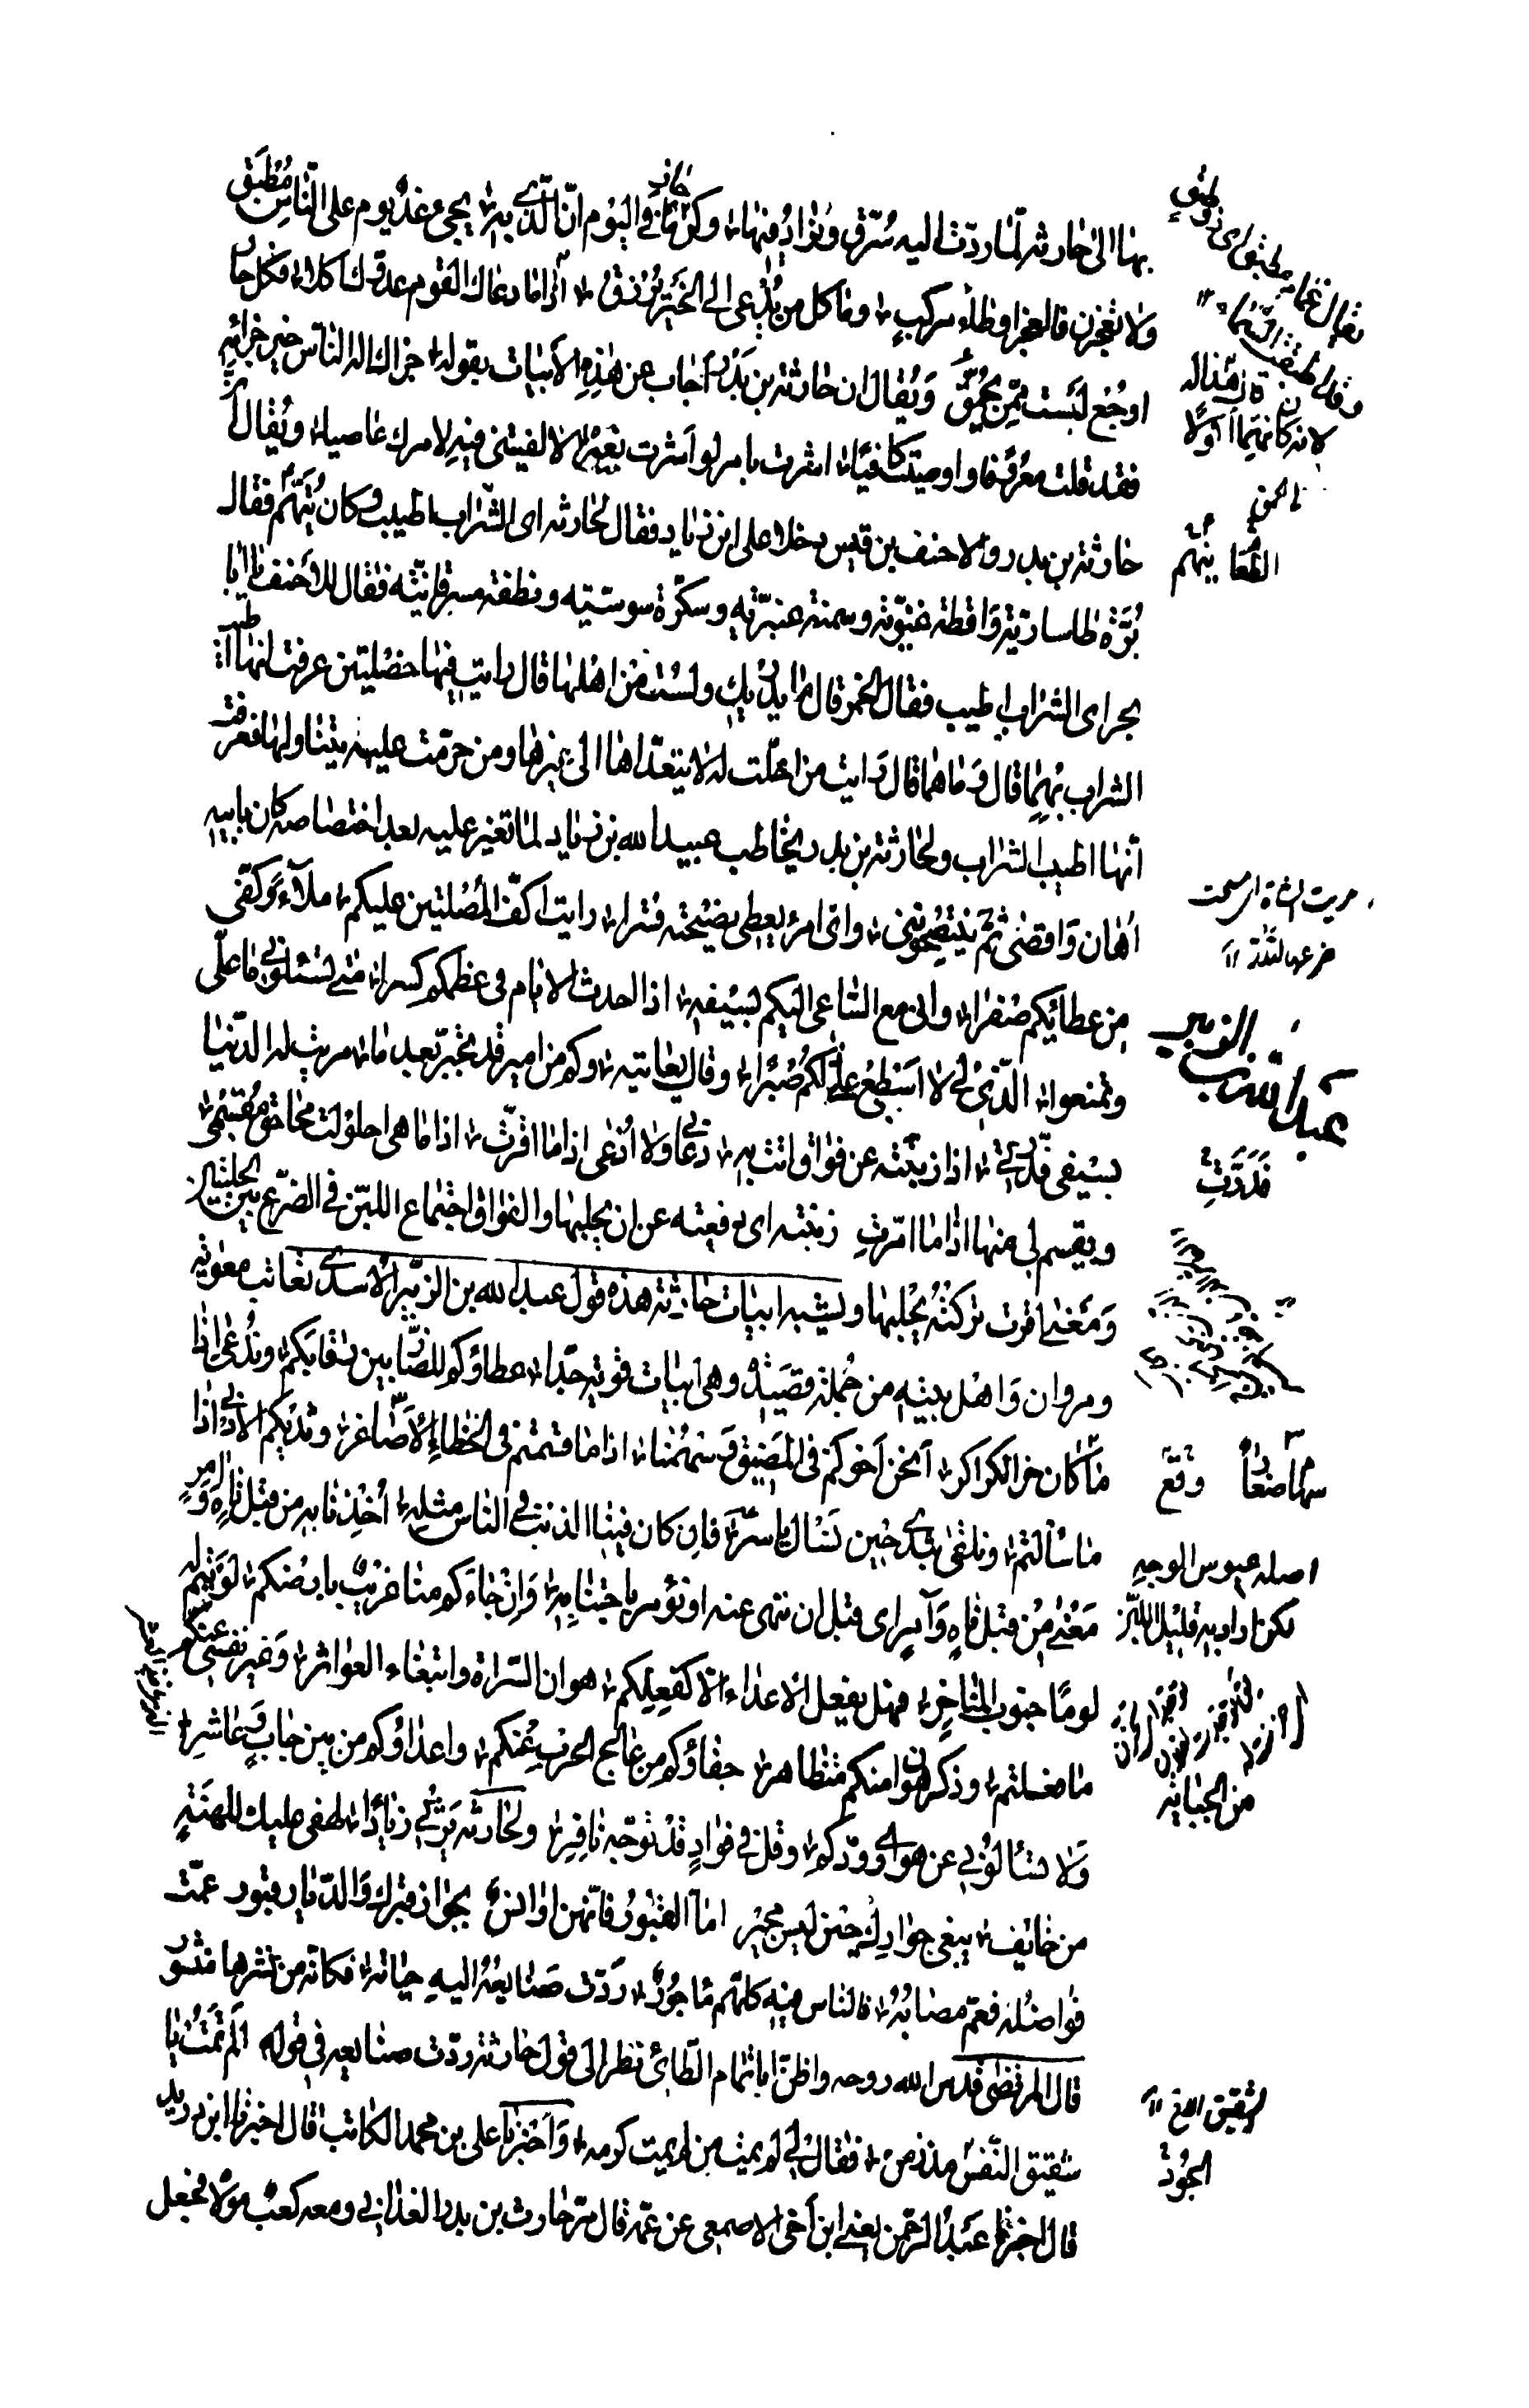 بها الى حارثة لما ردّت اليه سُرّق وزاد فيها وكن حازما في اليوم انّ الّذي به يجيء غدٌ يوم على النّاس مُطبق
ولا تعجزن فالعجز اوطأ مركبٍ وما كل من يُدعى الى الخير يُرزق اذا ما دعاك القوم عدّوك آكلا فكل حار
اوجُع لَست ممّن يحمق وَيُقال ان حارثة بن بدر اجاب عن هذه الابيات بقوله جزاك اله الناس خير جزائه
فقد قلت معرُوفا واوصيت كافيا اشرت بامر لو اشرت بغيره لالفيتني فيه لامرك عاصيا ويُقال انّ
حارثة بن بدر والاحنف بن قيس دخلا على ابن زياد فقال لحارثة اى الشّراب اطيب وكان يُتهم فقال
بُرّة طاسارية واقطة غنويّة وسمنة عنبريّة وسكّرة سوسيّة ونطفة مسرقانيّة فقال للاحنف يا ابا
بحر اى الشراب اطيب فقال الخمر قال وما يدريك ولستَ من اهلها قال رايت فيها خصلتين عرفت انها اطيب
الشراب بهما قال وَما هما قال رَايت من احلّت له لا يتعدّاها الى غيرها ومن حرمت عليه يتناولها فعرفت
أنها اطيب الشراب ولحارثة بن بدر يخاطب عبيد الله بن زياد لما تغير عليه بعد اختصاصه كان بابيه
اُهان وَاقصى ثم ينتصحونني واى امرء يعطى نصيحته قسرا رايت اكفّ المُصلتين عليكم ملآء وَكفّى
من عطائكم صُفرا وانى مع السّاعى اليكم بسيفه اذا احدث الايام فى عظمكم كسرا متى تسئلونى ما علىّ
وتمنعوا الّذى لى لا اسطع على ذلكم صبرا وقال يعاتبه وكم من امير قد تجبّر بعد ما مريت له الدّنيا
بسيفى فدرّت اذا زبنته عن فواق اتت به دعانى ولا اُدعى اذا ما اقرّت اذا ما هى احلولت محا حق مقسمى
ويقسم لى منها اذا ما امرّت زبنته اى دفعته عن ان يحلبها والفواق اجتماع اللبن فى الضرع بين الحلبتين
وَمَعنى اقرت تركته يحلبها ويشبه ابيات حارثة هذه قول عبد الله بن الزبير الاسدى يعاتب معوية
ومروان وَاهل بيته من جُملة قصيدة وهى ابيات قوية جدّا عطاؤكم للضّاربين رقابكم وندُعى اذا
ما كان حز الكراكر انحن اخوكم فى المضيق وَسهمُنا اذا ما قسمتم فى الخطاء الاصاغر وثديكم الادنى اذا
ما سألتم ونلقى بثدى حين نسال باسر فان كان فينا الذنب فى الناس مثله اُخذنا به من قبل ناه وَآمر
مَعنى من قبل ناه وَآمر اى قبل ان ننهى عنه او نؤمر باجتنابه وَانْ جاءكم منا غريب بارضكم لويتم له
لومًا جنوب المناخر فهل يفعل الاعداء الّا كفعلكم هوان السّراة وابتغاء العواثر وَغير نفسى عنكم
ما فعلتم وذكر هوان منكم متظاهر جفاؤكم من عالج الحرب عنكم واعداؤكم من بين جاب وعاشر
وَلا تسألونى عن هواى وودّكم وقل فى فوادٍ قد توجّه نافر ولحارثة يَرثى زيادًا لهفى عليك للهفة
من خائف يبغى جوارك حين ليس مجير امّا القبور فانّهن اوانس بجوار قبرك وَالدّيار قبور عمّت
فواضله فعمّ مصابُه فالناس فيه كلهم مأجور رَدّت صنايعُه اليه حياته فكانّه من نشرها منشور
قال المرتضى قدس الله روحه واظنّ ابا تمام الطائى نظر الى قول حارثة ردّت صنايعه فى قوله الَم تَمُت يا
شقيق النّفس مذ زمن فقال لى لم يمت من لم يمت كرمه وَاخبرنا على بن محمد الكاتب قال اخبرنا ابن دريد
قال اخبرنا عبد الرّحمن يعنى ابن اخى الاصمعى عن عمّه قال مرّ حارث بن بدر الغدانى ومعه كعب مولاه فجعل
لانه كان متهما اولا
بالخمر
مريت الشاة اى مسحت
ضرعها لتدرّ
عبد الله بن الزبير
فَدَرّتِ
وقع
اصله عبوس الوجه
لكن اراد به قليل اللبن
من الجباية
الجود